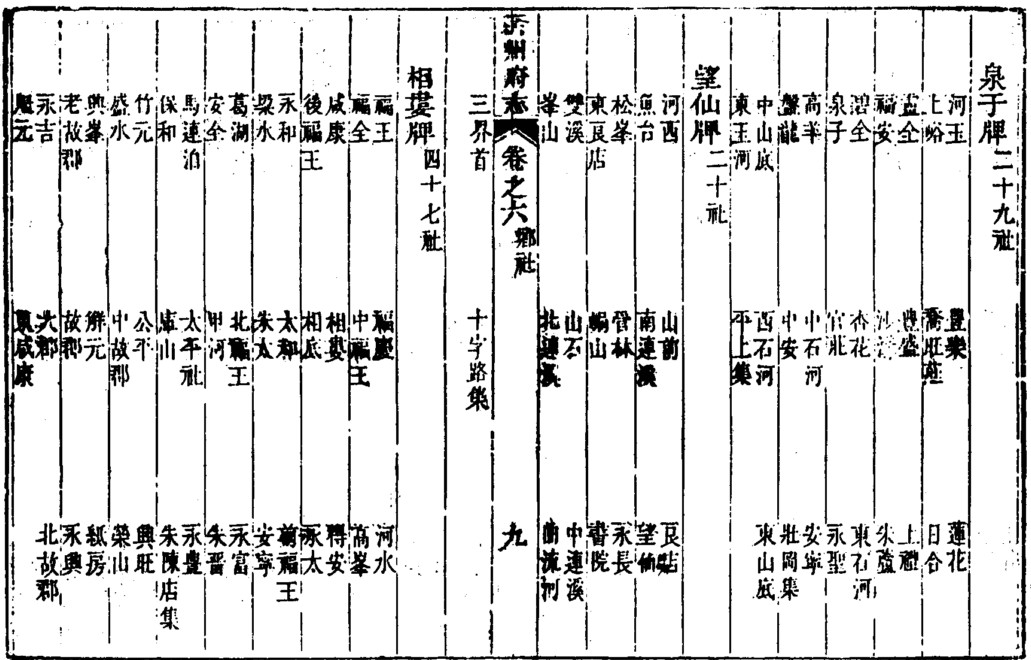 泉子牌二十九社
河玉 豐樂 蓮花
上峪 喬旺莊 日合
盂全 豐盛 上禮
福安 沙 朱蘆
碧全 杏花 東石河
泉子 官莊 永聖
高羊 中石河 安寧
盤龍 中安 壯岡集
中山底 西石河 東山底
東玉河 平上集
望仙牌二十社
河西 山前 良店
魚台 南連溪 望仙
松峯 管林 永長
東良店 蝎山 書院
雙溪 山石 中連溪
峯山 北連溪 前流河
沂州府志 卷之六 鄉社 九
三界首 十字路集
相婁牌四十七社
福王 福慶 河水
福全 中福王 高峯
咸康 相婁 特安
後福王 相底 永太
永和 太和 前福王
梁水 朱太 安寧
葛湖 北福王 永富
安全 甲河 朱晉
馬連泊 太平社 永豐
保和 庫山 朱陳店集
竹元 公平 興旺
盛水 中故郡 榮山
興峯 解元 紙房
老故郡 故郡 永興
永吉 大郡 北故郡
魁元 東咸康